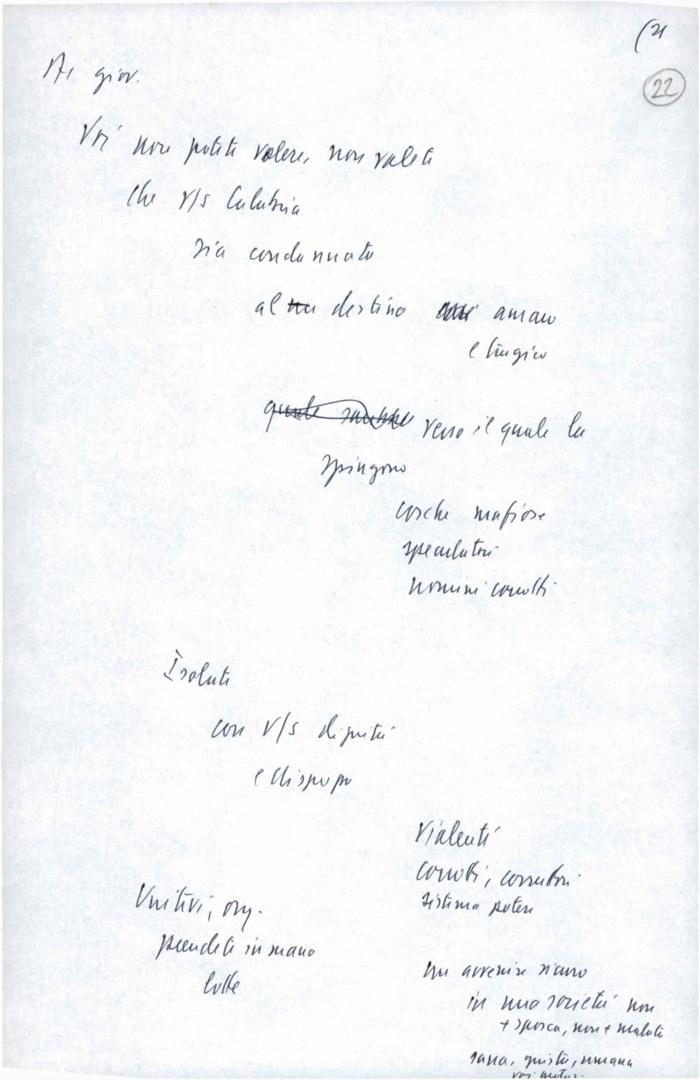 (21
22
Ai giov.
Voi non potete volere, non volete
che v/s Calabria
sia condannata
al destino amaro
e tragico
verso il quale la
spingono
cosche mafiose
speculatori
uomini corrotti
Isolate
con v/s dignità
e disprezzo
Violenti
corrotti, corruttori
sistema potere
Unitevi, org.
prendete in mano
lotte
un avvenire sicuro
in una società non
+ sporca, non + malata
sana, giusta, umana